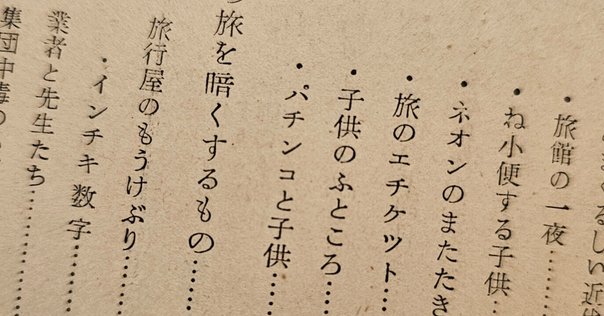 まぐるしい近
・旅館の一夜……
・ね小便する子供…
・ネオンのまたたき
・旅のエチケット……
・子供のふところ……
・パチンコと子供……
旅を暗くするもの……
旅行屋のもうけぶり……
・インチキ数字……
業者と先生たち……
集団中毒の